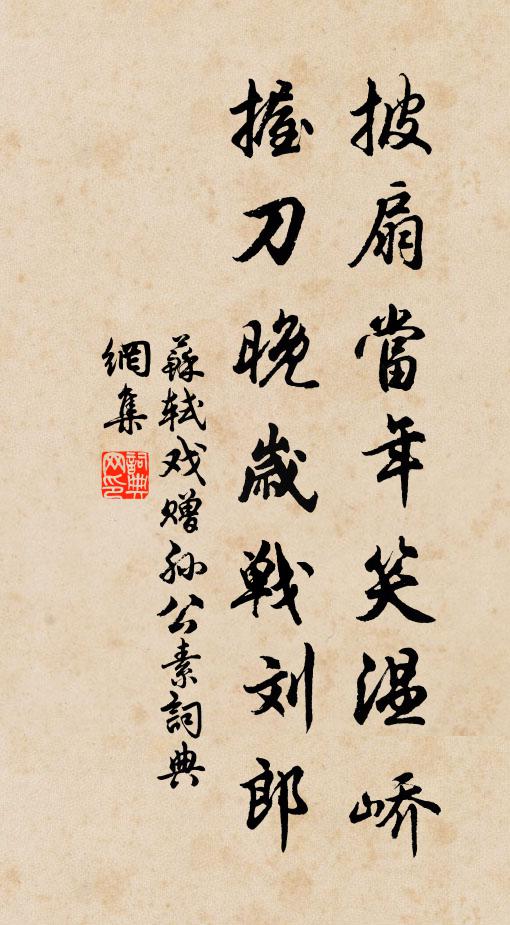 披扇當年笑温峤
握刀晚歲戦刘郎
蘇轼戏赠孙公素詞典
網集
詞典网印